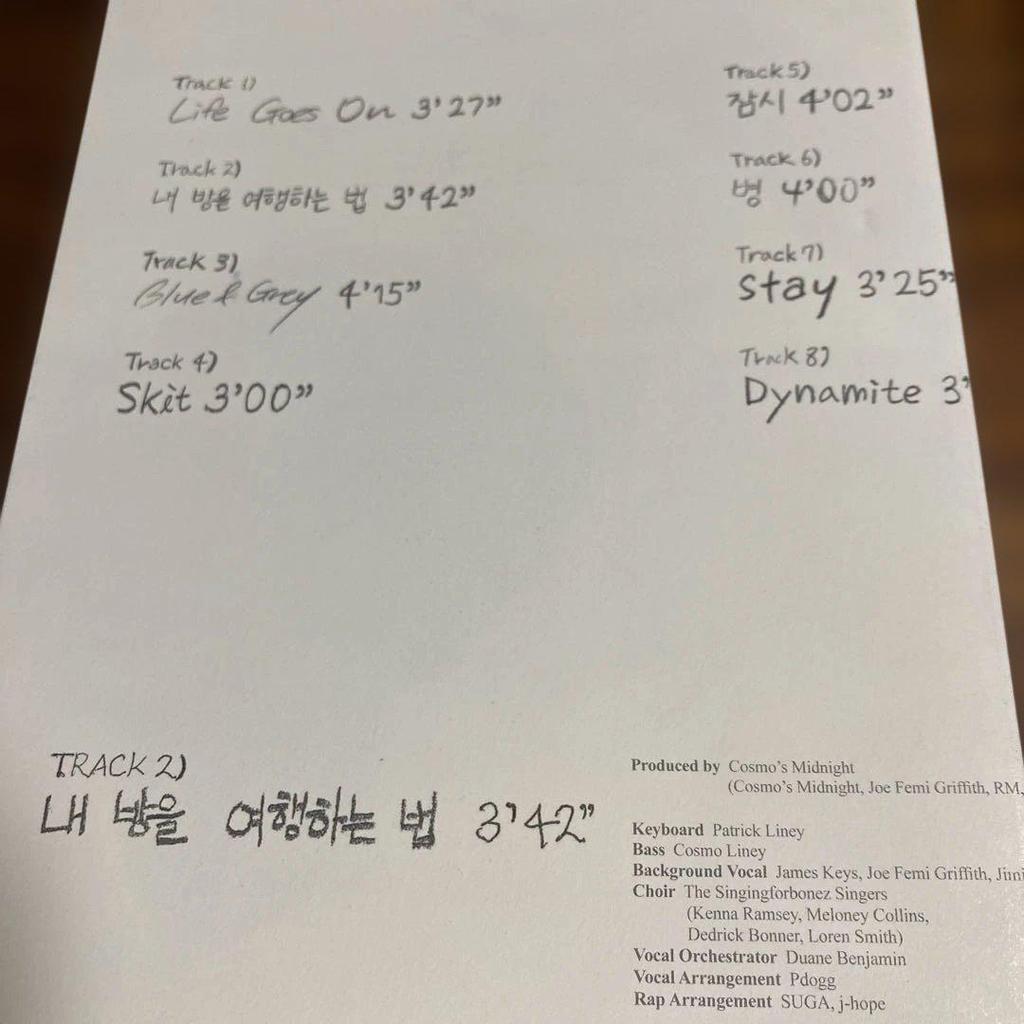 Track 1)
Life Goes On 3'27"
Track 2)
내 방을 여행하는 법 3'42"
Track 3)
Blue & Grey 4'15"
Track 4)
Skit 3'00"
Track 5)
잠시 4'02"
Track 6)
병 4'00"
Track 7)
stay 3'25"
Track 8)
Dynamite 3'
TRACK 2)
내 방을 여행하는 법 3'42"
Produced by Cosmo's Midnight
(Cosmo's Midnight, Joe Femi Griffith, RM,
Keyboard Patrick Liney
Bass Cosmo Liney
Background Vocal James Keys, Joe Femi Griffith,
Choir The Singingforbonez Singers
(Kenna Ramsey, Meloney Collins,
Dedrick Bonner, Loren Smith)
Vocal Orchestrator Duane Benjamin
Vocal Arrangement Pdogg
Rap Arrangement SUGA, j-hope